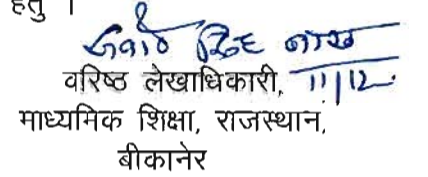 हेतु ।
सिंह
वरिष्ठ लेखाधिकारी, 11/12
माध्यमिक शिक्षा, राजस्थान,
बीकानेर